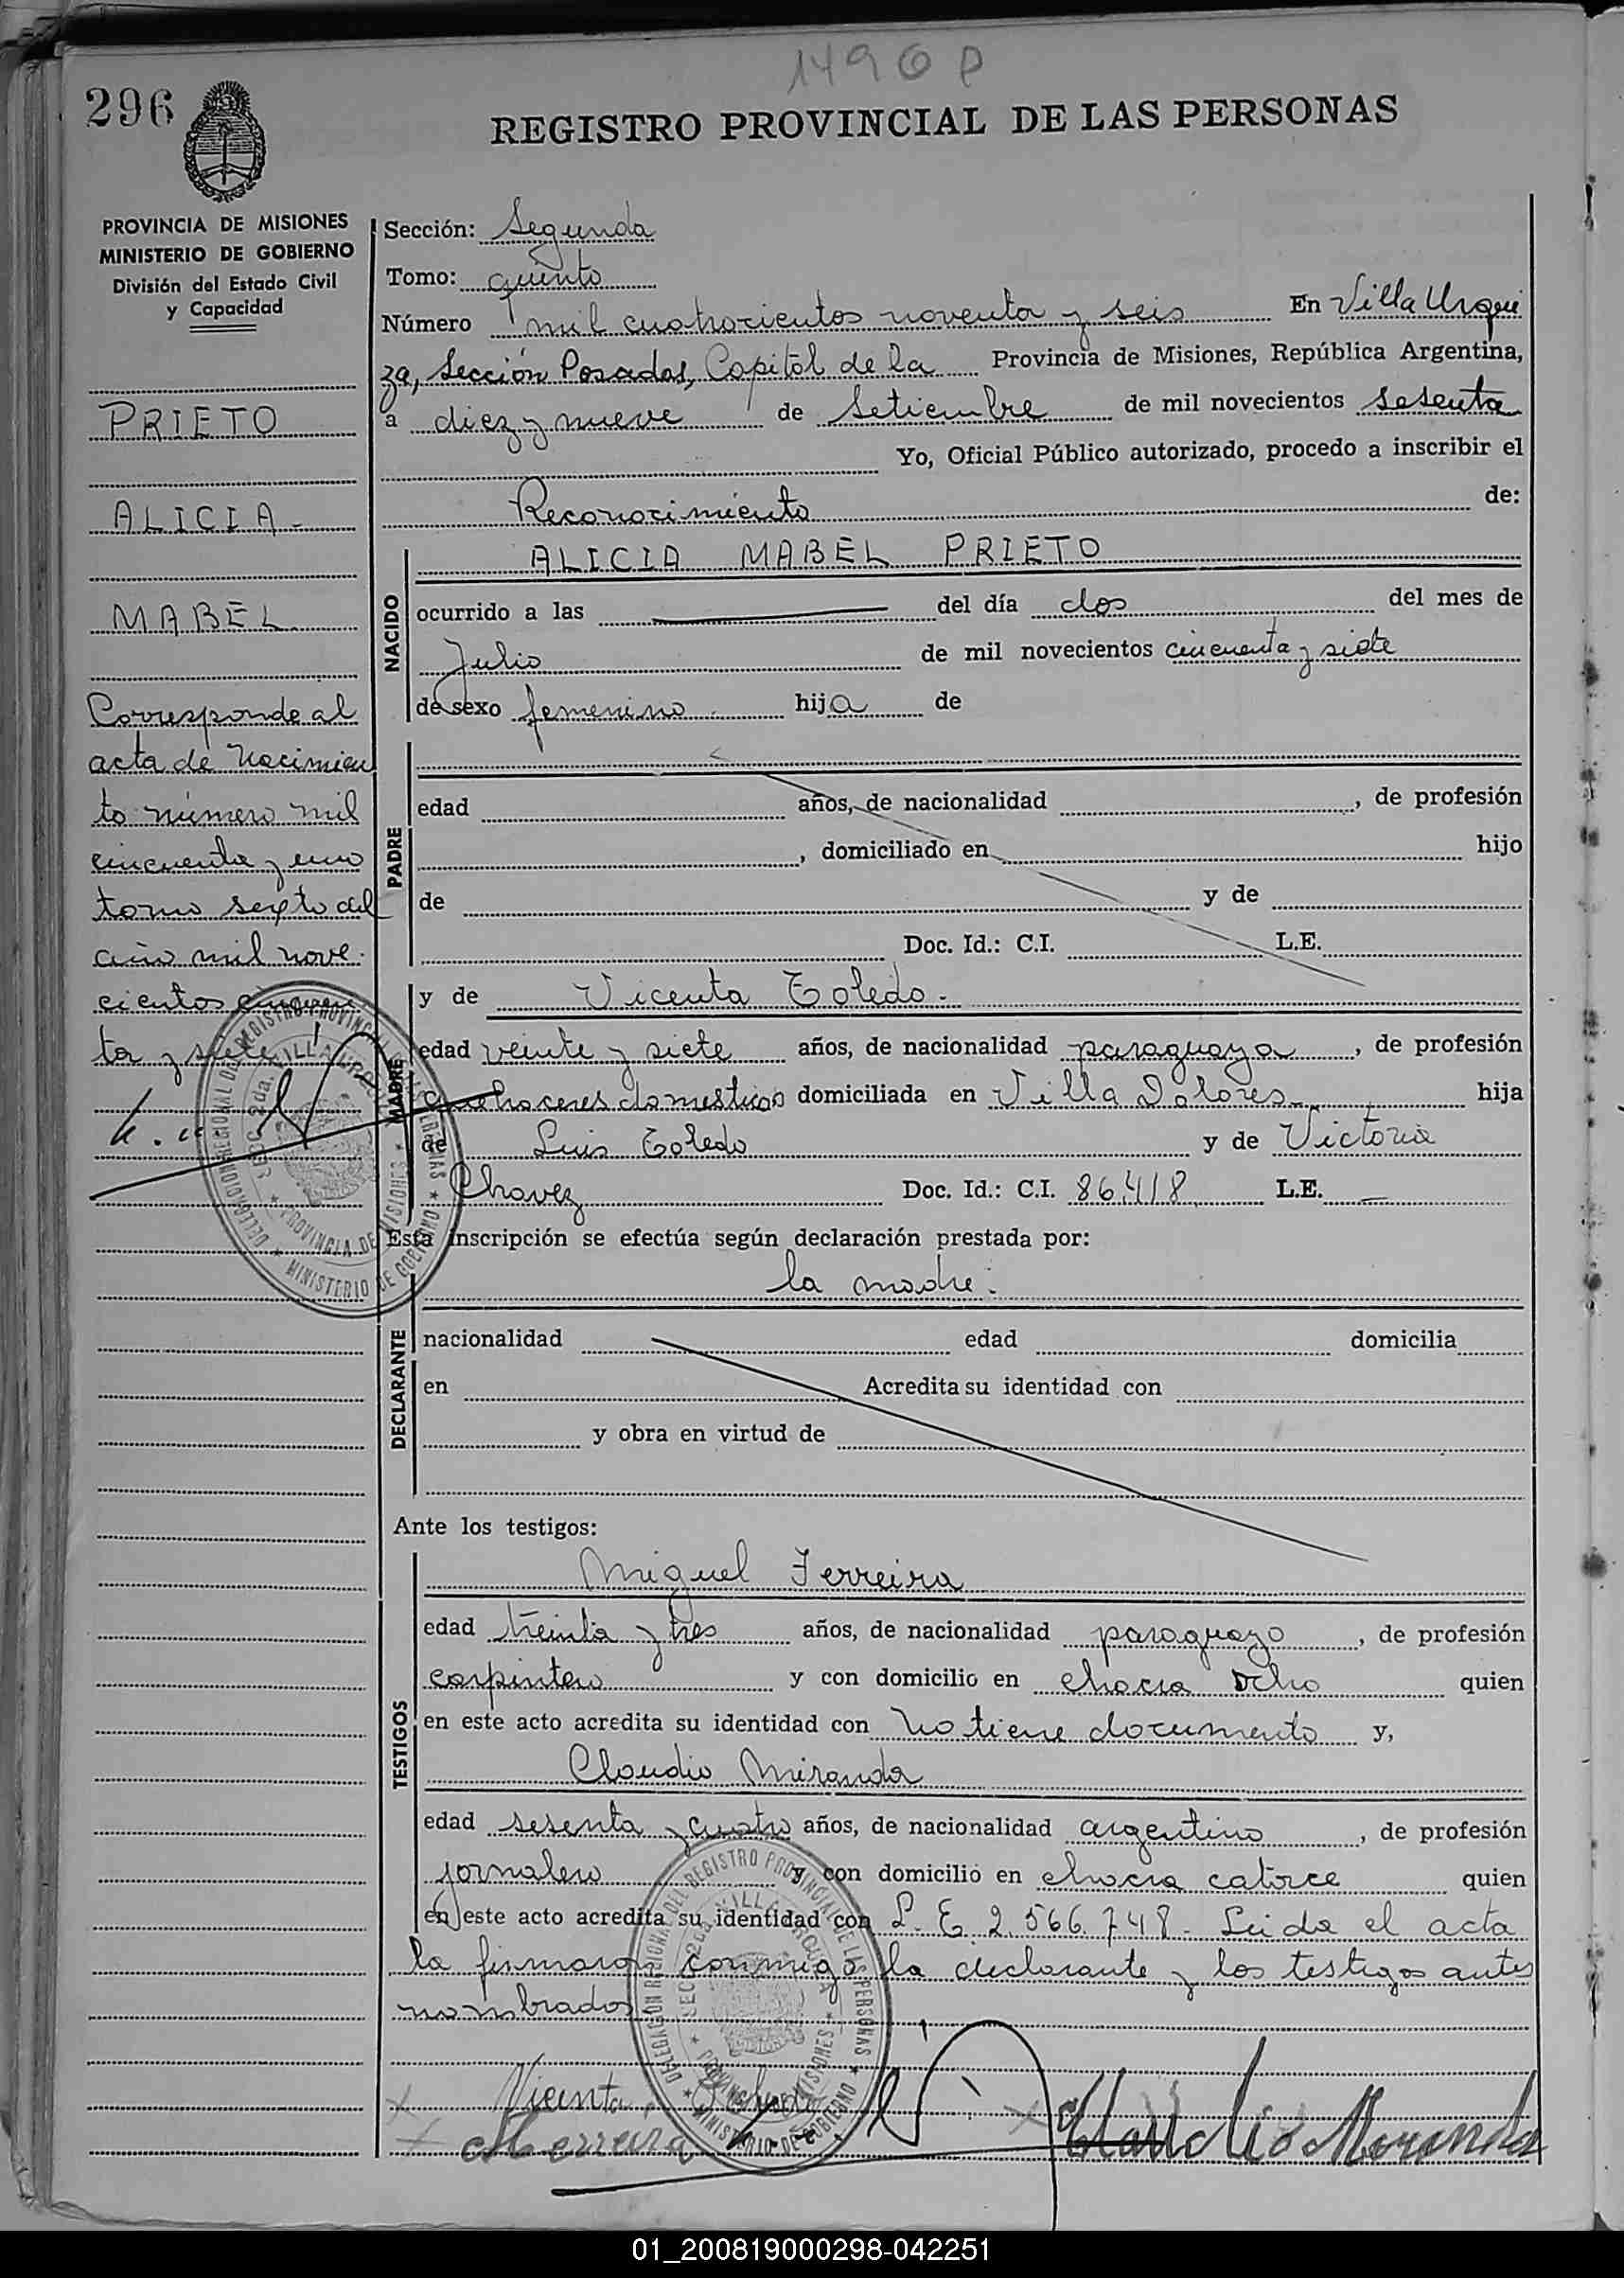 1490 P
296
REGISTRO PROVINCIAL DE LAS PERSONAS
PROVINCIA DE MISIONES
MINISTERIO DE GOBIERNO
División del Estado Civil
y Capacidad
PRIETO
ALICIA -
MABEL
Corresponde al
acta de Nacimien
to número mil
cincuenta y uno
tomo sexto del
año mil nove-
cientos cincuen
ta y siete
Sección: Segunda
Tomo: quinto
Número mil cuatrocientos noventa y seis En Villa Urqui
za, Sección Posadas, Capitál de la Provincia de Misiones, República Argentina,
a diez y nueve de Setiembre de mil novecientos sesenta
Yo, Oficial Público autorizado, procedo a inscribir el
Reconocimiento de:
NACIDO
ALICIA MABEL PRIETO
ocurrido a las del día dos del mes de
Julio de mil novecientos cincuenta y siete
de sexo femenino. hija de
PADRE
edad años, de nacionalidad , de profesión
, domiciliado en hijo
de y de
Doc. Id.: C.I. L.E.
MADRE
y de Vicenta Toledo.-
edad veinte y siete años, de nacionalidad paraguaya , de profesión
quehaceres domesticos domiciliada en Villa Dolores hija
de Luis Toledo y de Victoria
Chavez Doc. Id.: C.I. 86.418 L.E. —
Esta inscripción se efectúa según declaración prestada por:
la madre.
DECLARANTE
nacionalidad edad domicilia
en Acredita su identidad con
y obra en virtud de
Ante los testigos:
TESTIGOS
Miguel Ferreira
edad treinta y tres años, de nacionalidad paraguayo , de profesión
carpintero y con domicilio en chacra ocho quien
en este acto acredita su identidad con no tiene documento y,
Claudio Miranda
edad sesenta y cuatro años, de nacionalidad argentino , de profesión
jornalero y con domicilio en chacra catorce quien
en este acto acredita su identidad con L.E. 2.566.748 - Leida el acta
la firmaron conmigo la declarante y los testigos antes
nombrados
DELEGACION REGIONAL DEL REGISTRO PROVINCIAL DE LAS PERSONAS
SECC. 2da. VILLA URQUIZA
PROVINCIA DE MISIONES
MINISTERIO DE GOBIERNO
DELEGACION REGIONAL DEL REGISTRO PROVINCIAL DE LAS PERSONAS
SECC. 2da. VILLA URQUIZA
PROVINCIA DE MISIONES
MINISTERIO DE GOBIERNO
Vicenta Toledo
Claudio Miranda
01_200819000298-042251